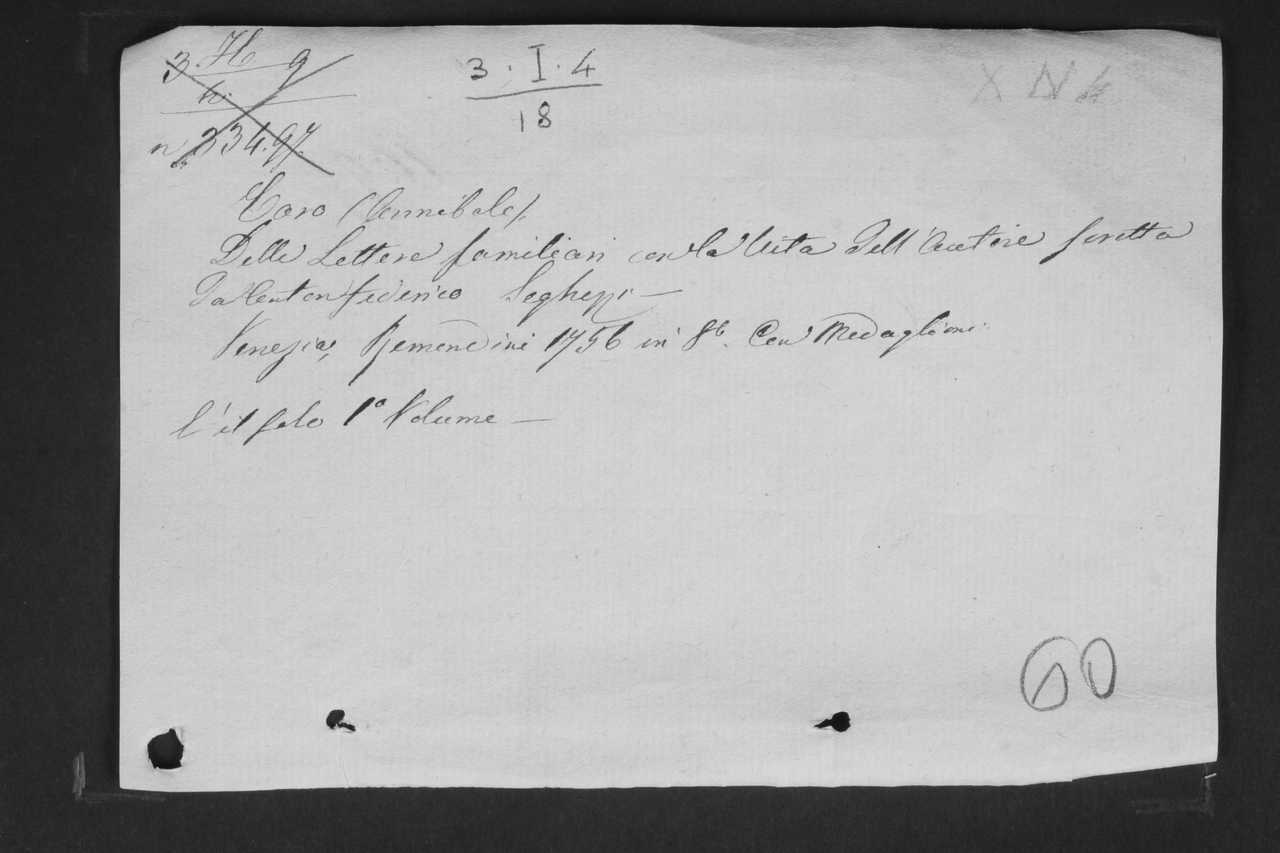 3. H 9
h.
n. 23497.
3 . I . 4
18
X N 4
Caro (Annibale).
Delle Lettere familiari con la Vita dell'Autore scritta
da Anton Federico Seghezzi —
Venezia, Remondini 1756 in 8º. Con Medaglione.
C'è il solo 1º Volume —